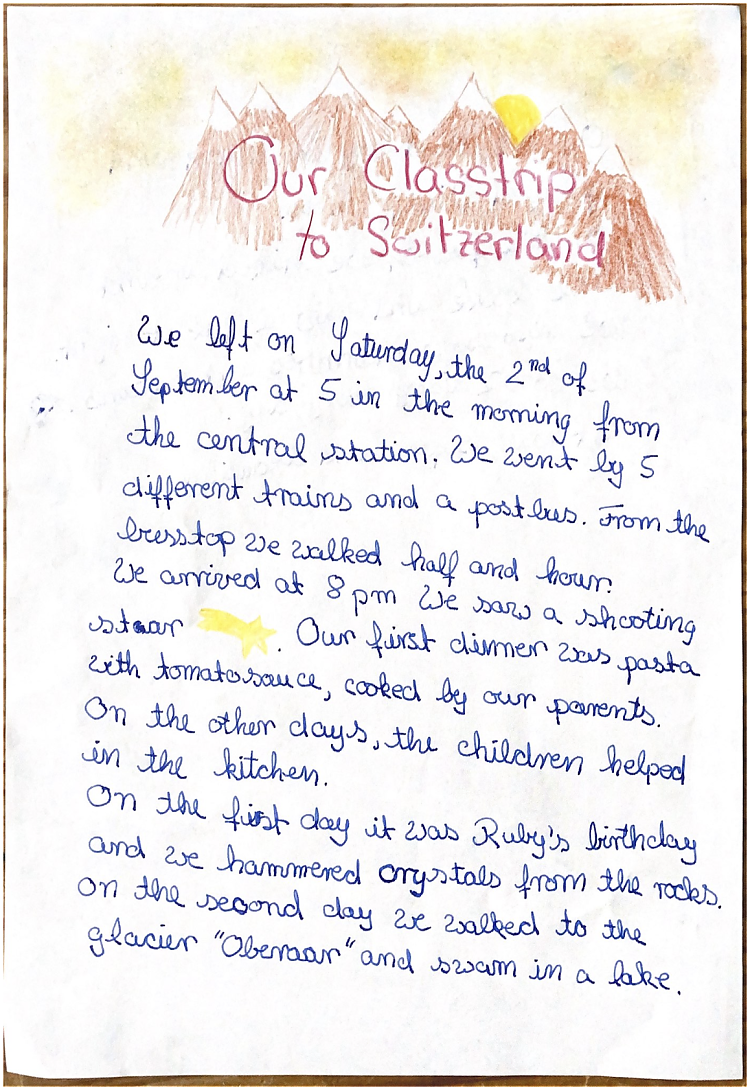 Our Classtrip
to Switzerland
We left on Saturday, the 2nd of
September at 5 in the morning from
the central station. We went by 5
different trains and a postbus. From the
busstop we walked half and hour.
We arrived at 8 pm We saw a shooting
staar .
Our first dinner was pasta
with tomatosauce, cooked by our parents.
On the other days, the children helped
in the kitchen.
On the first day it was Ruby's birthday
and we hammered crystals from the rocks.
On the second day we walked to the
glacier "Oberaar" and swam in a lake.